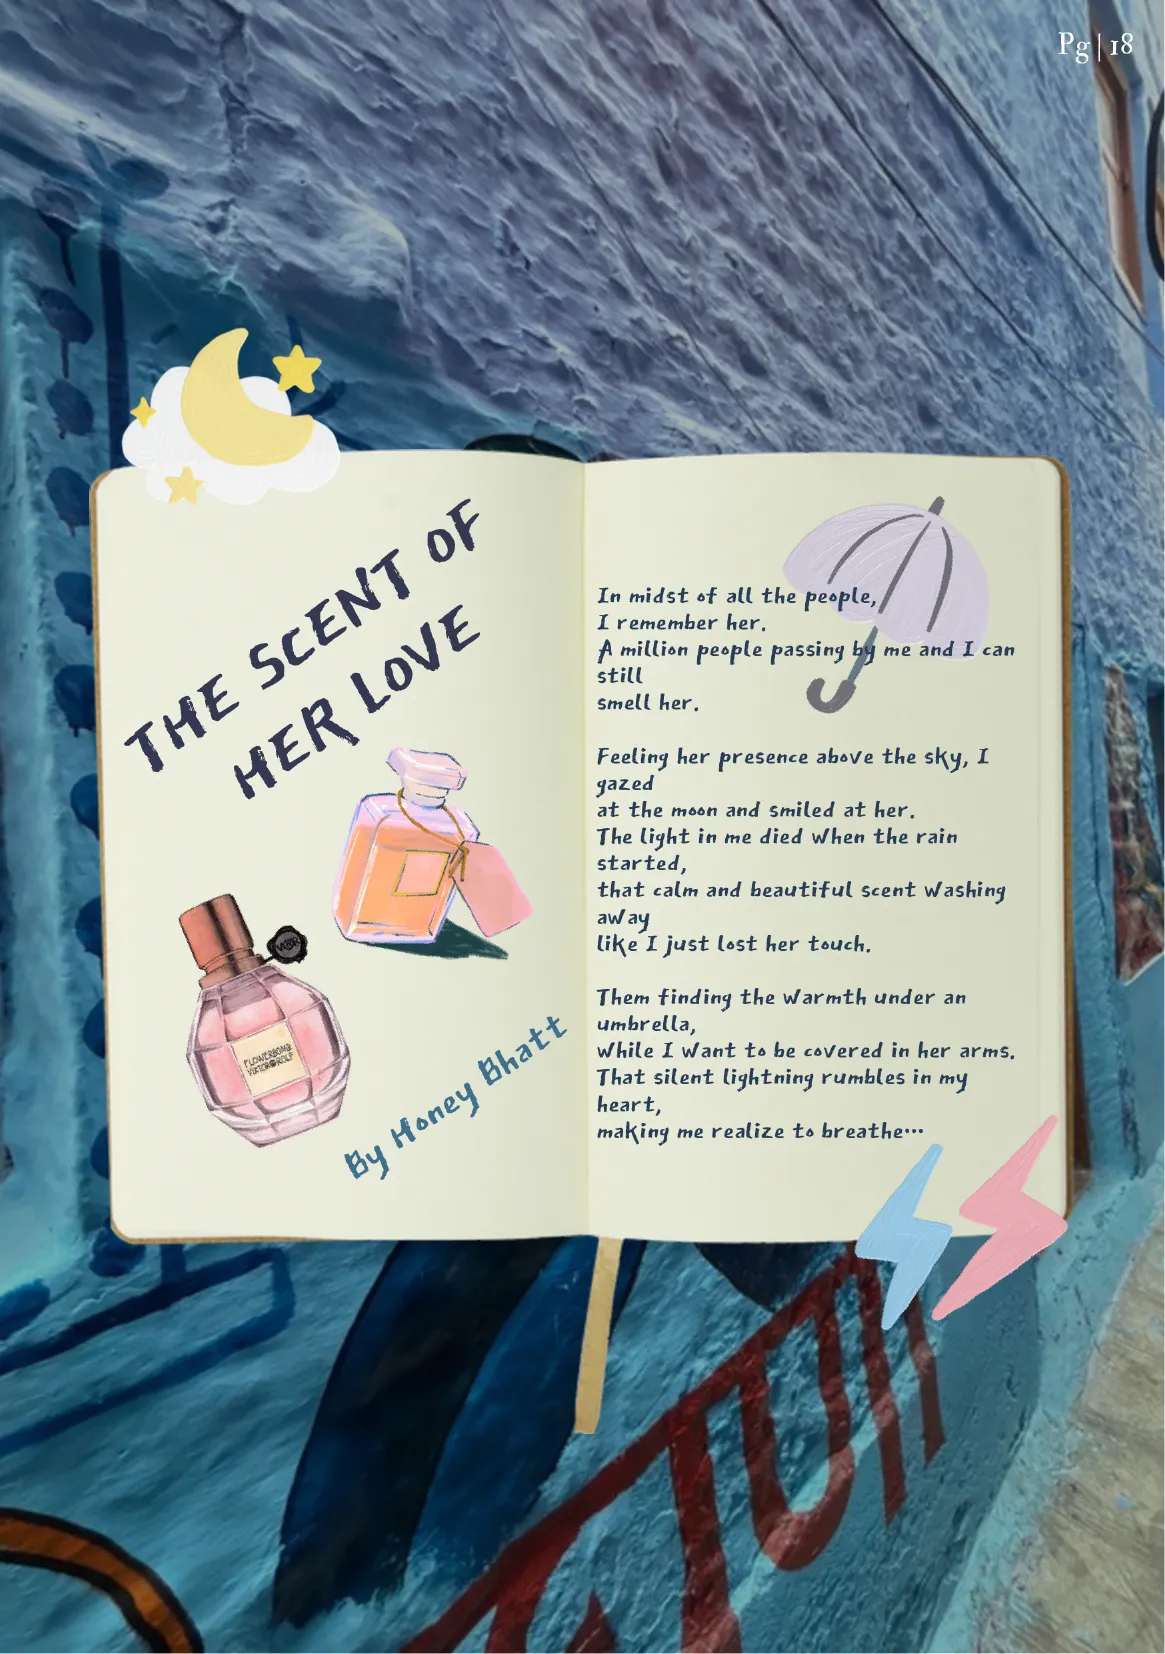 Pg | 18
THE SCENT OF
HER LOVE
FLOWERBOMB
VIKTOR&ROLF
By Honey Bhatt
In midst of all the people,
I remember her.
A million people passing by me and I can
still
smell her.
Feeling her presence above the sky, I
gazed
at the moon and smiled at her.
The light in me died when the rain
started,
that calm and beautiful scent washing
away
like I just lost her touch.
Them finding the warmth under an
umbrella,
while I want to be covered in her arms.
That silent lightning rumbles in my
heart,
making me realize to breathe...